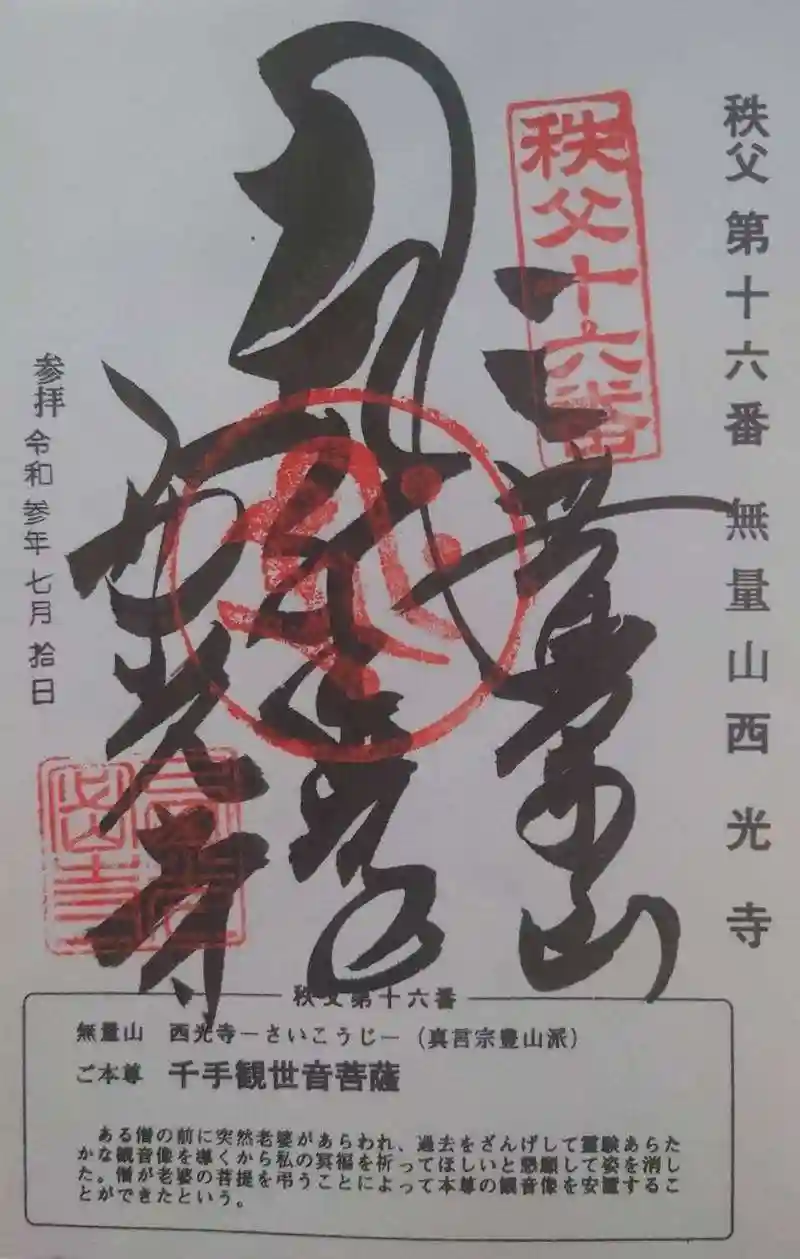 秩父第十六番 無量山西光寺
秩父十六番
無量山
西光寺
参拝 令和参年七月拾日
秩父第十六番
無量山 西光寺－さいこうじ－（真言宗豊山派）
ご本尊 千手観世音菩薩
ある僧の前に突然老婆があらわれ、過去をざんげして霊験あらた
かな観音像を導くから私の冥福を祈ってほしいと懇願して姿を消し
た。僧が老婆の菩提を弔うことによって本尊の観音像を安置するこ
とができたという。